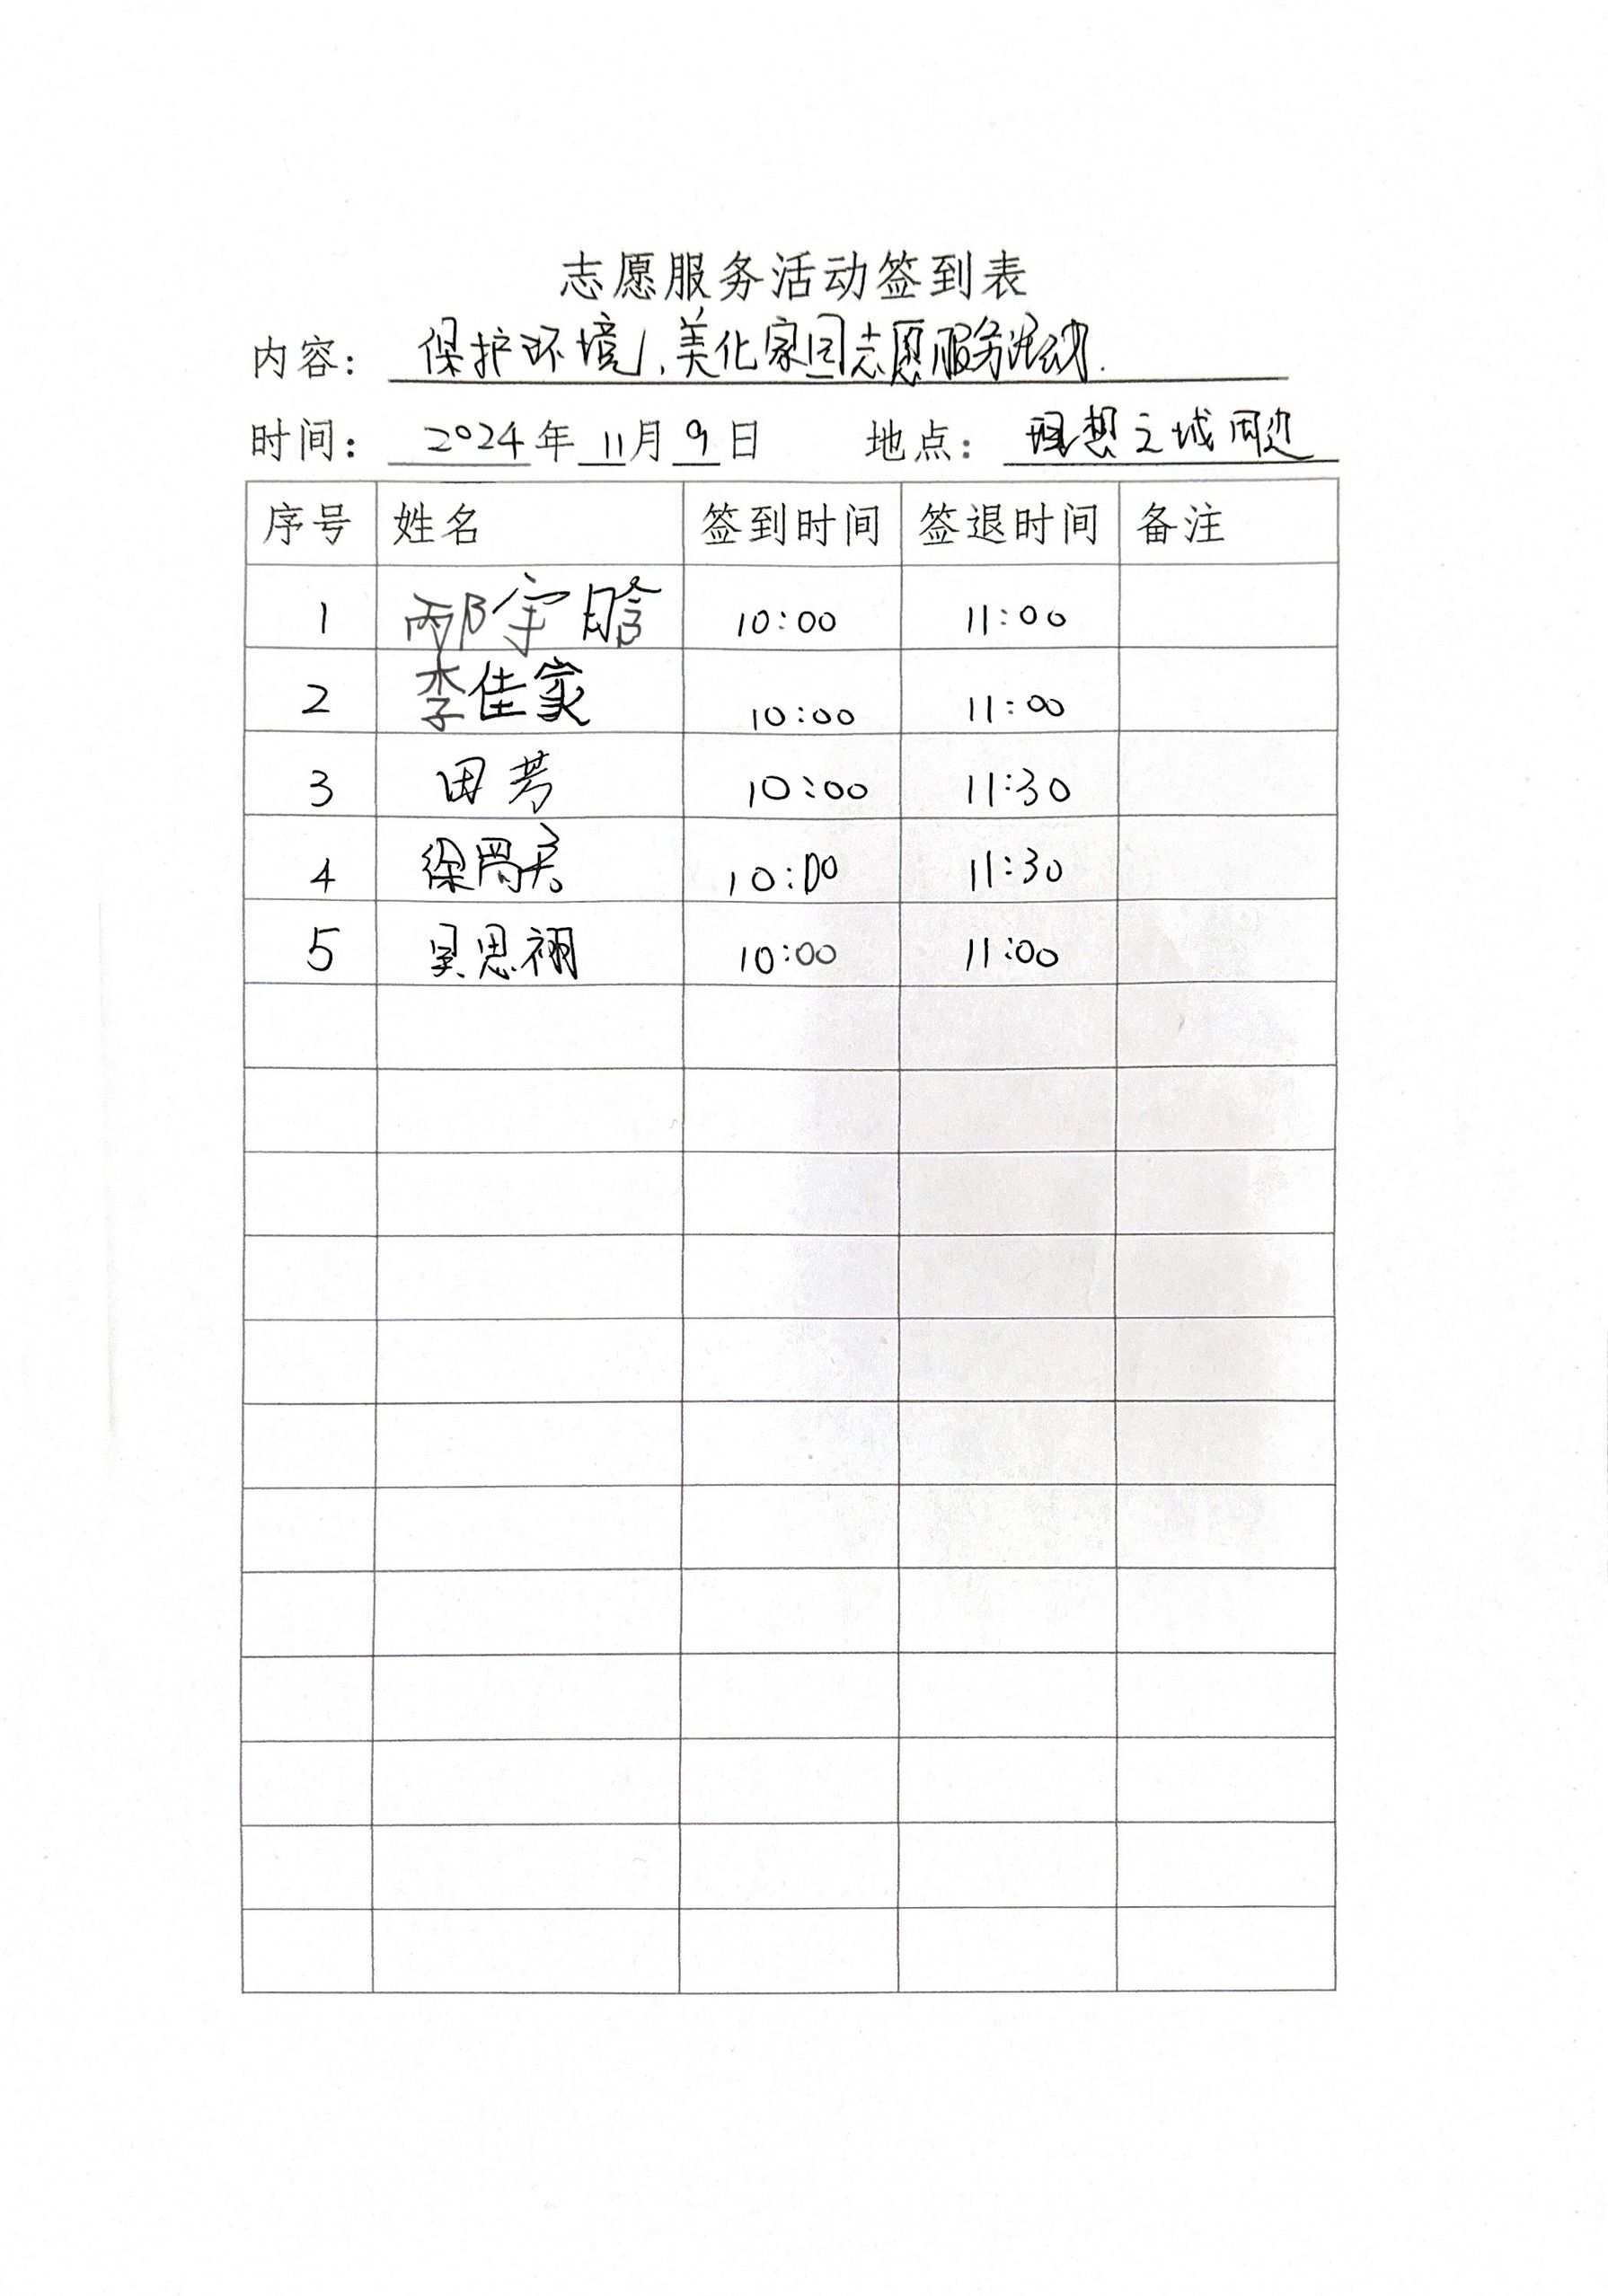 志愿服务活动签到表
内容： 保护环境、美化家园志愿服务活动.
时间： 2024 年 11 月 9 日 地点： 理想之城周边
序号 姓名 签到时间 签退时间 备注
1 邴宇晗 10:00 11:00
2 李佳家 10:00 11:00
3 田芳 10:00 11:30
4 徐 10:00 11:30
5 吴思栩 10:00 11:00